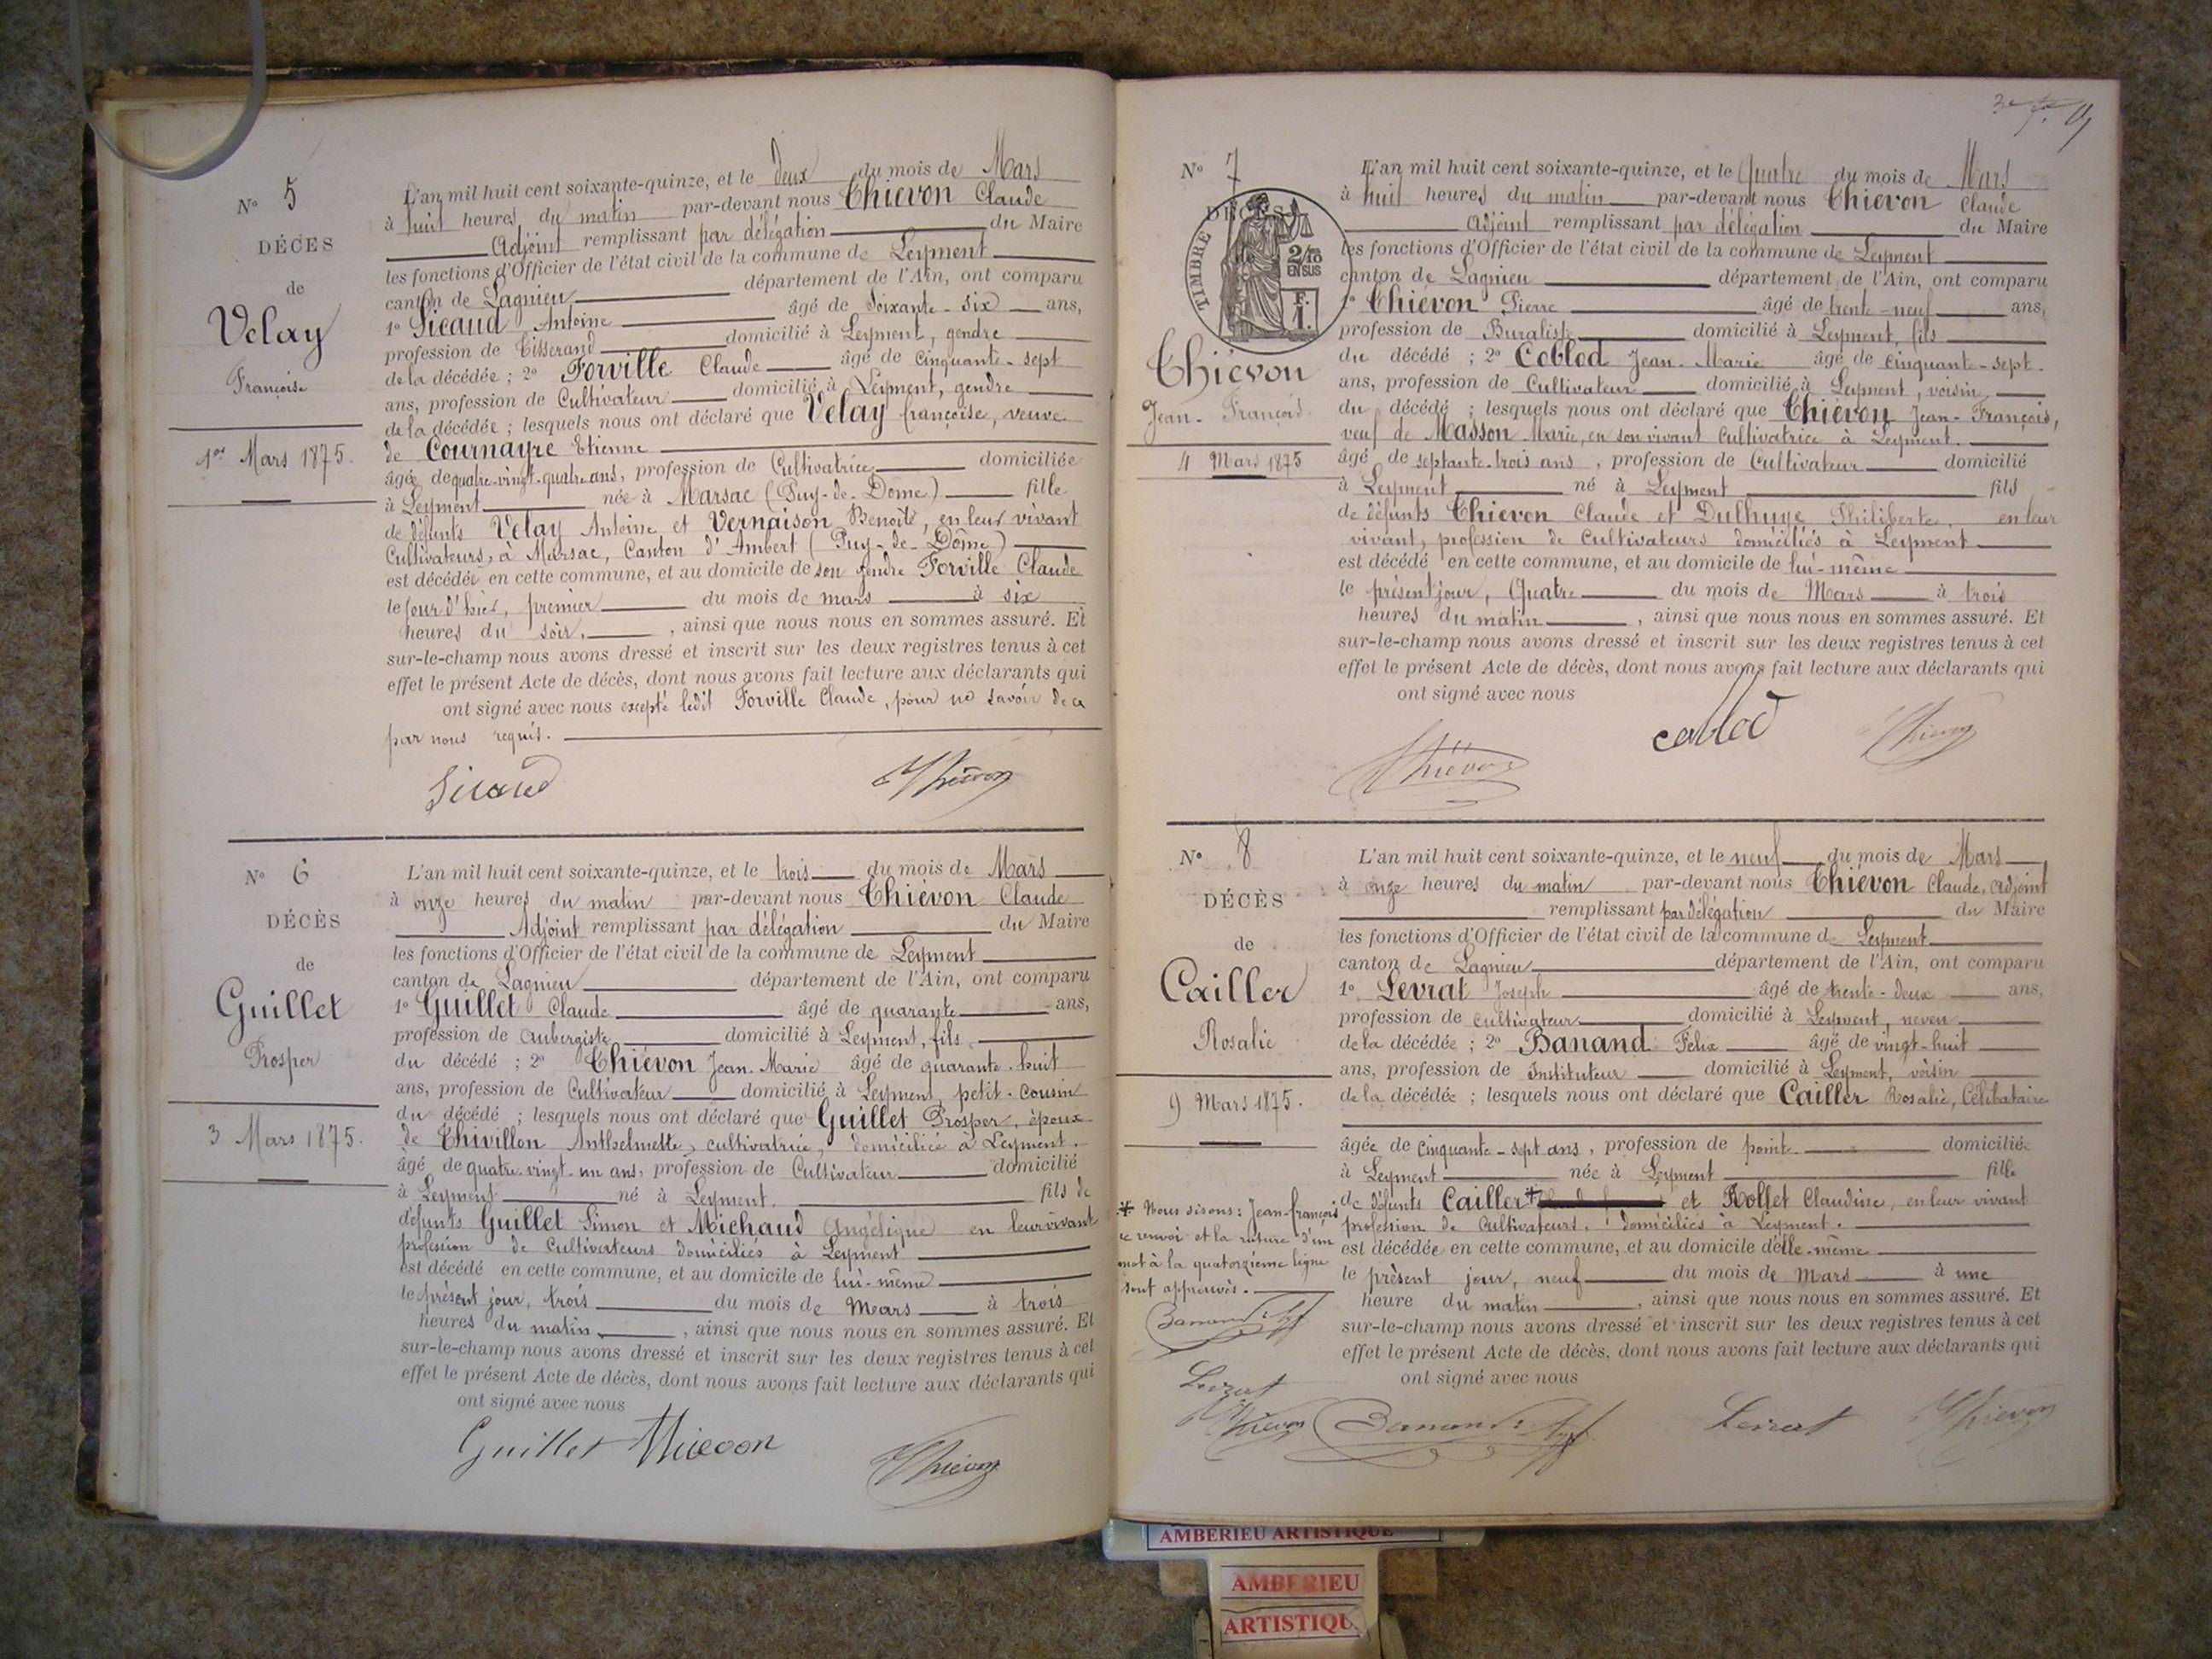 N° 5
DÉCES
de
Velay
Françoise
1er Mars 1875.
L'an mil huit cent soixante-quinze, et le deux du mois de Mars
à huit heures du matin par-devant nous Thiévon Claude
Adjoint remplissant par délégation du Maire
les fonctions d'Officier de l'état civil de la commune de Leyment
canton de Lagnieu département de l'Ain, ont comparu
1° Sicaud Antoine âgé de soixante-six ans,
profession de Tisserand domicilié à Leyment, gendre
de la décédée ; 2° Forville Claude âgé de cinquante-sept
ans, profession de Cultivateur domicilié à Leyment, gendre
de la décédée ; lesquels nous ont déclaré que Velay françoise, veuve
de Cournayre Etienne
âgée de quatre-vingt-quatre ans, profession de Cultivatrice domiciliée
à Leyment née à Marsac (Puy-de-Dôme) fille
de défunts Velay Antoine et Vernaison Benoîte, en leur vivant
Cultivateurs, à Marsac, Canton d'Ambert (Puy-de-Dôme)
est décédée en cette commune, et au domicile de son gendre Forville Claude
le jour d'hier, premier du mois de mars à six
heures du soir, , ainsi que nous nous en sommes assuré. Et
sur-le-champ nous avons dressé et inscrit sur les deux registres tenus à cet
effet le présent Acte de décès, dont nous avons fait lecture aux déclarants qui
ont signé avec nous excepté ledit Forville Claude, pour ne savoir de ce
par nous requis.
Sicaud Thiévon
N° 6
DÉCÈS
de
Guillet
Prosper
3 Mars 1875.
L'an mil huit cent soixante-quinze, et le trois du mois de Mars
à onze heures du matin par-devant nous Thiévon Claude
Adjoint remplissant par délégation du Maire
les fonctions d'Officier de l'état civil de la commune de Leyment
canton de Lagnieu département de l'Ain, ont comparu
1° Guillet Claude âgé de quarante ans,
profession de aubergiste domicilié à Leyment, fils
du décédé ; 2° Thiévon Jean-Marie âgé de quarante-huit
ans, profession de Cultivateur domicilié à Leyment, petit-cousin
du décédé ; lesquels nous ont déclaré que Guillet Prosper, époux
de Thivillon Anthelmette, cultivatrice, domiciliée à Leyment.
âgé de quatre-vingt-un ans, profession de Cultivateur domicilié
à Leyment né à Leyment, fils de
défunts Guillet Simon et Michaud Angélique en leur vivant
profession de Cultivateurs domiciliés à Leyment
est décédé en cette commune, et au domicile de lui-même
le présent jour, trois du mois de Mars à trois
heures du matin, , ainsi que nous nous en sommes assuré. Et
sur-le-champ nous avons dressé et inscrit sur les deux registres tenus à cet
effet le présent Acte de décès, dont nous avons fait lecture aux déclarants qui
ont signé avec nous
Guillet Thievon Thiévon
N° 7
DÉCÈS
TIMBRE
2/10
EN SUS
F.
1.
Thiévon
Jean-François
4 Mars 1875
L'an mil huit cent soixante-quinze, et le Quatre du mois de Mars
à huit heures du matin par-devant nous Thiévon Claude
Adjoint remplissant par délégation du Maire
les fonctions d'Officier de l'état civil de la commune de Leyment
canton de Lagnieu département de l'Ain, ont comparu
1° Thiévon Pierre âgé de trente-neuf ans,
profession de Buraliste domicilié à Leyment, fils
du décédé ; 2° Coblod Jean-Marie âgé de cinquante-sept
ans, profession de Cultivateur domicilié à Leyment, voisin
du décédé ; lesquels nous ont déclaré que Thiévon Jean-François,
veuf de Masson Marie, en son vivant Cultivatrice à Leyment.
âgé de septante-trois ans, profession de Cultivateur domicilié
à Leyment né à Leyment fils
de défunts Thievon Claude et Dulhuye Philiberte, en leur
vivant, profession de Cultivateurs domiciliés à Leyment
est décédé en cette commune, et au domicile de lui-même
le présent jour, Quatre du mois de Mars à trois
heures du matin , ainsi que nous nous en sommes assuré. Et
sur-le-champ nous avons dressé et inscrit sur les deux registres tenus à cet
effet le présent Acte de décès, dont nous avons fait lecture aux déclarants qui
ont signé avec nous
Thiévon coblod Thiévon
N° 8
DÉCÈS
de
Cailler
Rosalie
9 Mars 1875.
* Nous disons : Jean-françois
ce renvoi et la rature d'un
mot à la quatorzième ligne
sont approuvés.
Banand
Levrat
Thiévon
L'an mil huit cent soixante-quinze, et le neuf du mois de Mars
à onze heures du matin par-devant nous Thiévon Claude, adjoint
remplissant par délégation du Maire
les fonctions d'Officier de l'état civil de la commune de Leyment
canton de Lagnieu département de l'Ain, ont comparu
1° Levrat Joseph âgé de trente-deux ans,
profession de cultivateur domicilié à Leyment, neveu
de la décédée ; 2° Banand Felix âgé de vingt-huit
ans, profession de Instituteur domicilié à Leyment, voisin
de la décédée ; lesquels nous ont déclaré que Cailler Rosalie, Célibataire
âgée de cinquante-sept ans, profession de point domiciliée
à Leyment née à Leyment fille
de défunts Cailler * et Rollet Claudine, en leur vivant
profession de Cultivateurs, domiciliés à Leyment.
est décédée en cette commune, et au domicile d'elle-même
le présent jour, neuf du mois de Mars à une
heure du matin , ainsi que nous nous en sommes assuré. Et
sur-le-champ nous avons dressé et inscrit sur les deux registres tenus à cet
effet le présent Acte de décès, dont nous avons fait lecture aux déclarants qui
ont signé avec nous
Banand Levrat Thievon
AMBERIEU ARTISTIQUE
AMBERIEU
ARTISTIQU